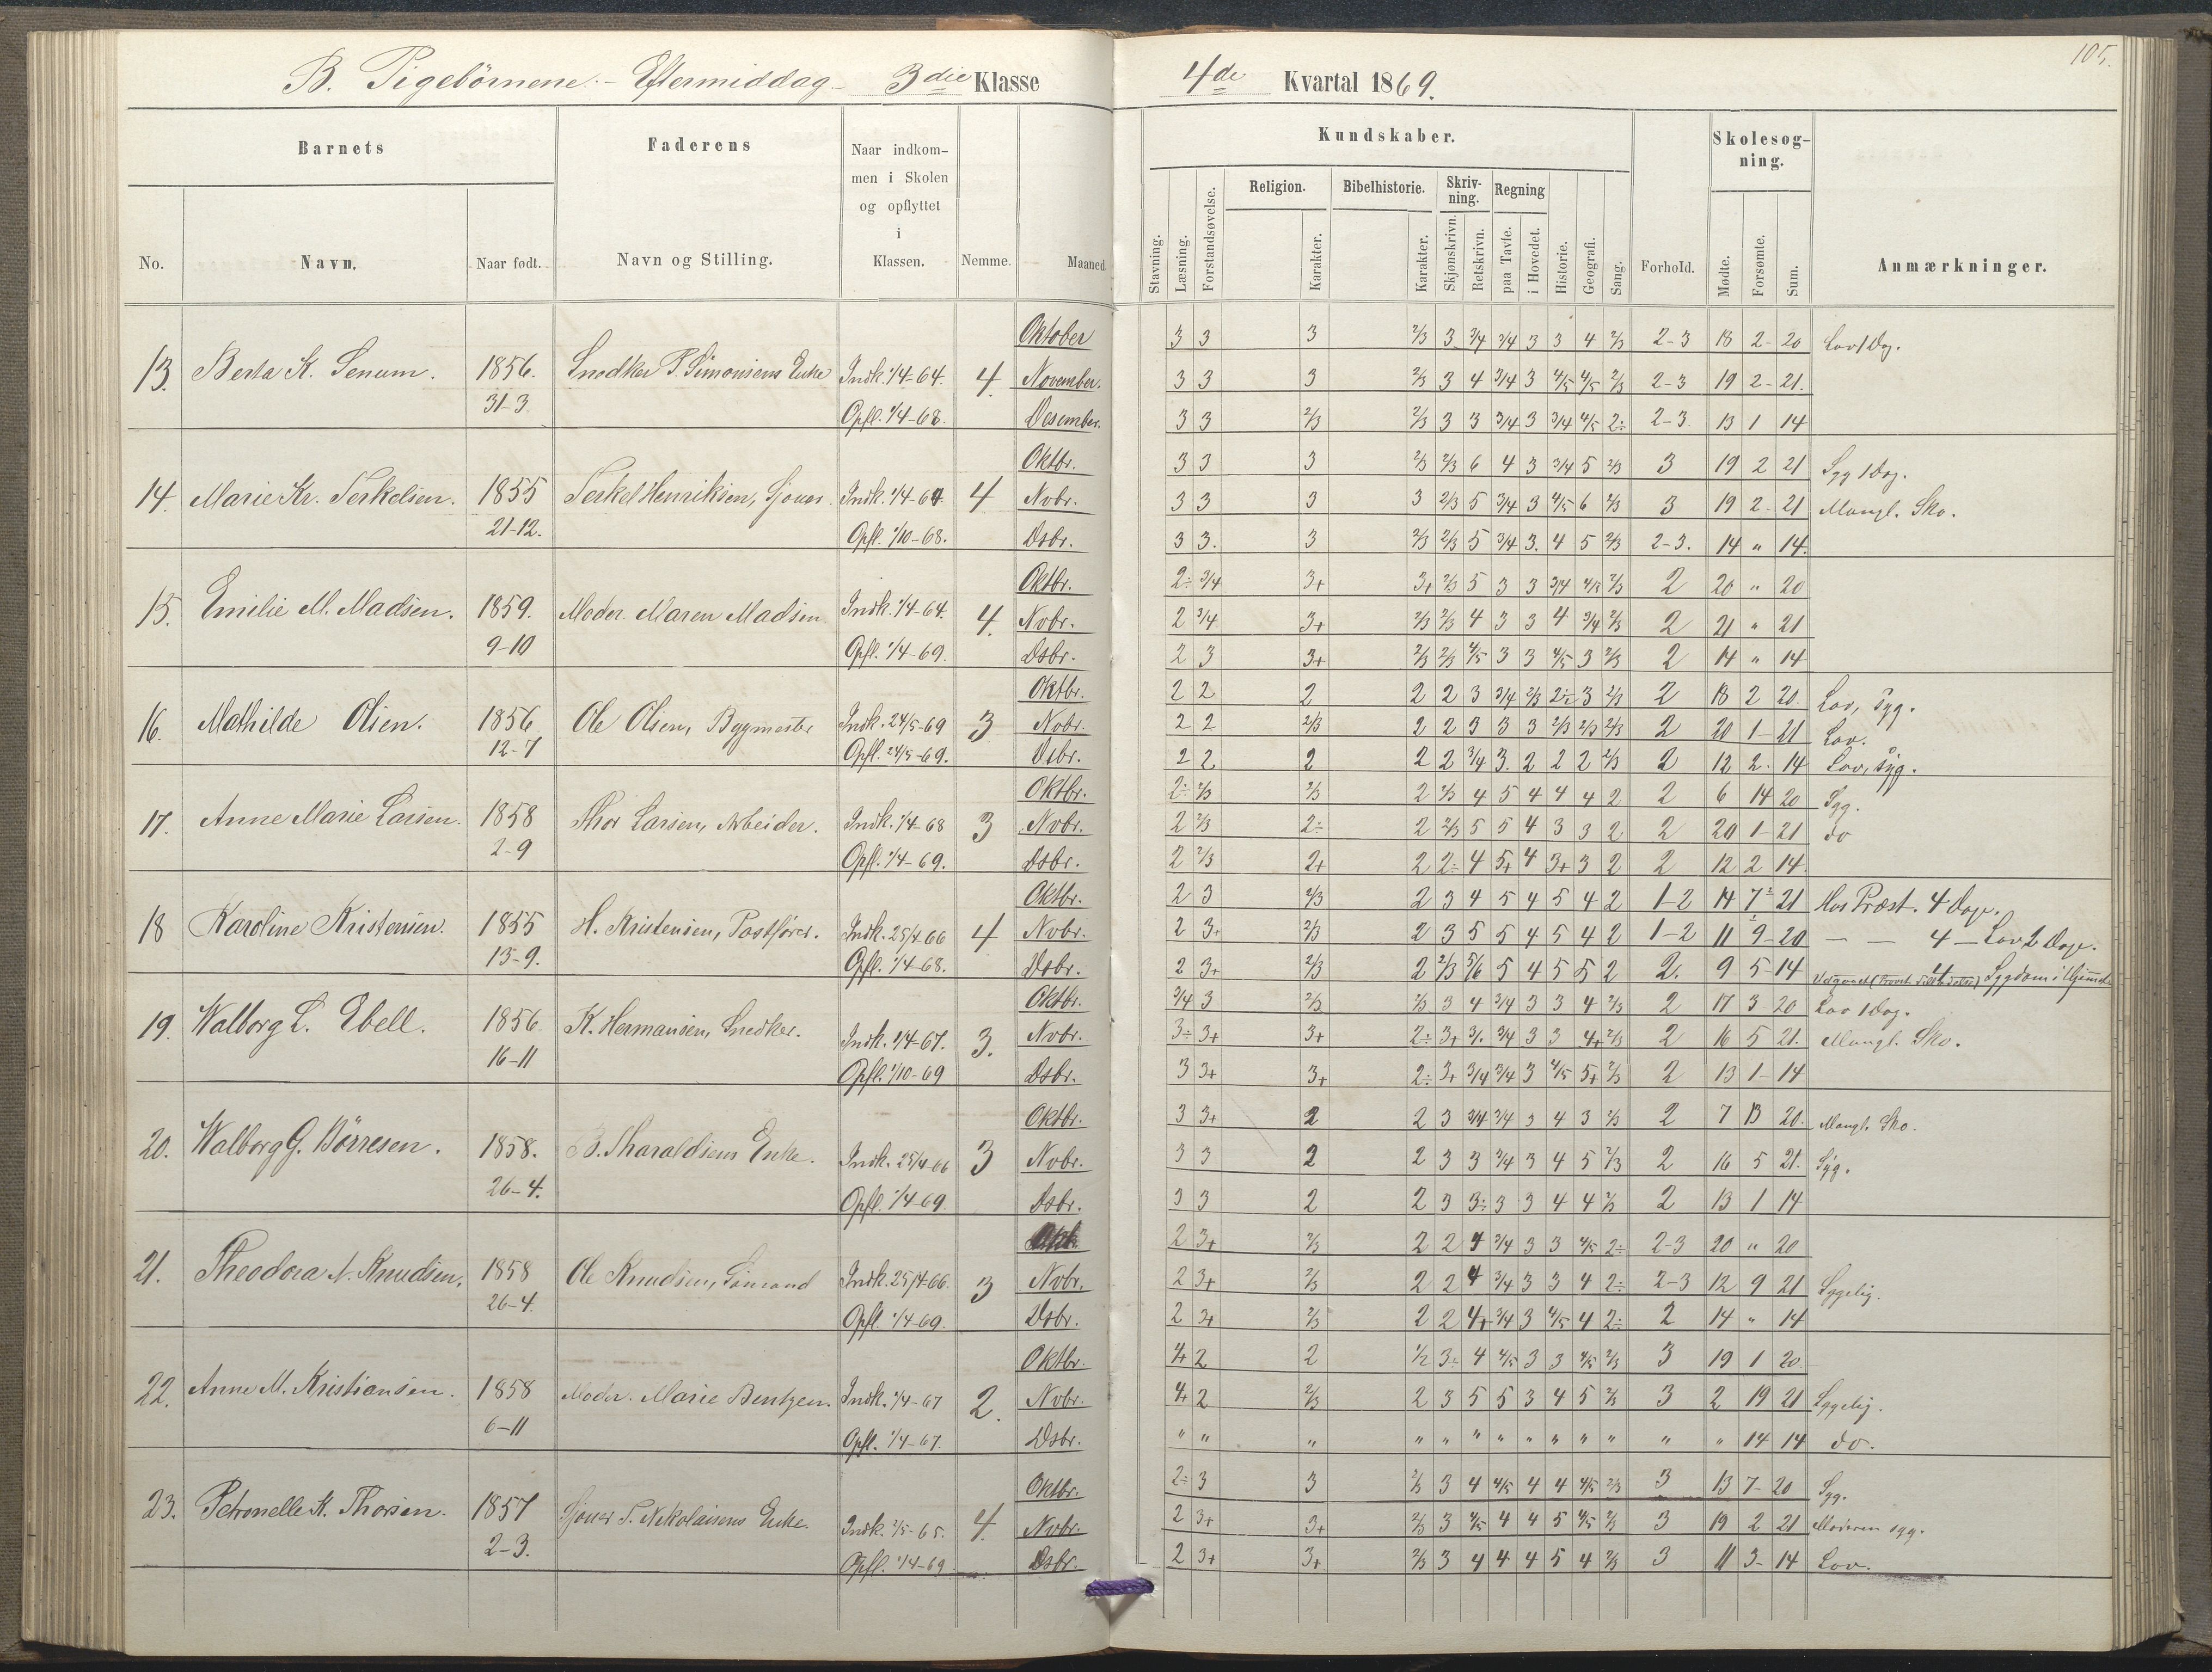 105.
B. Pigebörnene - Eftermiddag - 3die Klasse 4de Kvartal 1869.
Barnets
Faderens
Naar indkommen i Skolen og opflyttet i Klassen.
Kundskaber.
Skolesogning.
Religion. Bibelhistorie. Skrivning. Regning
No. Navn. Naar født. Navn og Stilling. Nemme. Maaned. Stavning. Læsning. Forstandsøvelse. Karakter. Karakter. Skjønskrivn. Retskrivn. paa Tavle. i Hovedet. Historie. Geografi. Sang. Forhold. Mødte. Forsømte. Sum. Anmærkninger.
Oktober 3 3 3 2/3 3 3/4 3/4 3 3 4 2/3 2-3 18 2- 20 Lov 1 Dag.
13. Berta K. Senum. 1856. Snedker P. Simonsens Enke Indk. 1/4-64. 4. November. 3 3 3 2/3 3 4 3/4 3 4/5 4/5 2/3 2-3 19 2- 21.
31-3. Opfl. 1/4-68. Desember. 3 3 2/3 2/3 3 3 3/4 3 3/4 4/5 2÷ 2-3. 13 1 14
Oktbr. 3 3 3 2/3 2/3 6 4 3 3/4 5 2/3 3 19 2 21 Syg 1 Dag.
14. Marie Kr. Terkelsen. 1855 Terkel Henriksen, Sjouer. Indk. 1/4-64. 4 Nvbr. 3 3 3 3 2/3 5 3/4 3 4/5 6 2/3 3 19 2- 21 Mangl. Sko.
21-12. Opfl. 1/10-68. Dsbr. 3 3. 3 2/3 2/3 5 3/4 3. 4 5 2/3 2-3. 14 " 14.
Oktbr. 2÷ 3/4 3+ 3+ 2/3 5 3 3 3/4 4/5 2/3 2 20 " 20
15. Emilie M. Madsen. 1859. Moder Maren Madsen Indk. 1/4-64. 4. Nvbr. 2 3/4 3+ 2/3 2/3 4 3 3 4 3/4 2/3 2 21 " 21
9-10 Opfl. 1/4-69. Dsbr. 2 3 3+ 2/3 2/3 4/5 3 3 4/5 3 2/3 2 14 " 14
Oktbr. 2 2 2 2 2 3 3/4 2/3 2÷ 3 2/3 2 18 2 20. Lov, Syg.
16. Mathilde Olsen. 1856 Ole Olsen, Bygmester Indk. 24/5-69 3 Nvbr. 2 2 2/3 2 2 3 3 3 2/3 2/3 2/3 2 20 1- 21 Lov.
12-7 Opfl. 24/5-69. Dsbr. 2 2 2 2 2 3/4 3. 2 2 2 2/3 2 12 2. 14 Lov, Syg.
Oktbr. 2÷ 2/3 2/3 2 2/3 4 5 4 4 4 2 2 6 14 20 Syg.
17. Anne Marie Larsen. 1858 Thor Larsen, Arbeider. Indk. 1/4-68 3 Nvbr. 2 2/3 2÷ 2 2/3 5 5 4 3 3 2 2 20 1- 21 do
2-9 Opfl. 1/4-69. Dsbr. 2 2/3 2+ 2 2÷ 4 5+ 4 3+ 3 2 2 12 2 14
Oktbr. 2 3 2/3 2 3 4 5 4 5 4 2 1-2 14 7÷ 21 Hos Præst. 4 Dage.
18 Karoline Kristensen. 1855 H. Kristensen, Postfører. Indk. 25/4-66 4 Nvbr. 2 3+ 2/3 2 3 5 5 4 5 4 2 1-2 11 9- 20 — — 4 - Lov 2 Dage.
13-9. Opfl. 1/4-68. Dsbr. 2 3+ 2/3 2 2/3 5/6 5 4 5 5 2 2. 9 5- 14 Sygdom i Hjemmet
Oktbr. 3/4 3 2/3 2/3 3 4 3/4 3 3 4 2/3 2 17 3 20 Lov 1 Dag.
19. Walborg L. Ebell. 1856 K. Hermansen, Snedker. Indk. 1/4-67. 3. Nvbr. 3÷ 3+ 3+ 2÷ 3+ 3/. 3/4 3 3 4+ 2/3 2 16 5 21. Mangl. Sko.
16-11 Opfl. 1/10-69 Dsbr. 3 3+ 3+ 2÷ 3+ 3/4 3/4 3 4/5 5+ 2/3 2 13 1- 14
Oktbr. 3 3+ 2 2 3 3/4 3/4 3 4 3 2/3 2 7 13 20. Mangl. Sko.
20. Walborg G. Börresen. 1858. B. Tharaldsens Enke. Indk. 25/4-66 3 Nvbr. 3 3 2 2 3 3 3/4 3 4 5 2/3 2 16 5 21. Syg.
26-4. Opfl. 1/4-69. Dsbr. 3 3 2 2 3 3÷ 3 3 4 4 2/3 2 13 1 14
2 3+ 2/3 2 2 4 3/4 3 3 4/5 2÷ 2-3 20 " 20
21. Theodora N. Knudsen. 1858 Ole Knudsen, Sömand Indk. 25/4-66. 3 Nvbr. 2 3+ 2/3 2 2 4 3/4 3 3 4 2÷ 2-3 12 9 21 Sygelig.
26-4. Opfl. 1/4-69. Dsbr. 2 3+ 2/3 2 2 4+ 3/4 3 4/5 4 2÷ 2 14 " 14
Oktbr. 4 2 2 1/2 3÷ 4 4/5 3 3 4/5 2/3 3 19 1 20
22. Anne M. Kristiansen. 1858 Moder. Marie Bentzen. Indk. 1/4-67 2. Nvbr. 4 2 2/3 2 3 5 5 3 4 5 2/3 3 2 19 21 Sygelig.
6-11 Opfl. 1/4-67. Dsbr. " " " " " " " " " " " " " 14 14 do.
Oktbr. 2÷ 3 3 2/3 3 4 4/5 4 4 4/5 2/3 3 13 7- 20 Syg.
23. Petronelle K. Thorsen. 1857 Sjouer T. Nikolaisens Enke. Indk. 1/5-65. 4. Nvbr. 2 3+ 3+ 2/3 3 4/5 4 4 5 4/5 2/3 3 19 2 21 Moderen syg.
2-3. Opfl. 1/4-69 Dsbr. 2 3+ 3+ 2/3 3 4 4 4 5 4 2/3 3 11 3- 14 Lov.